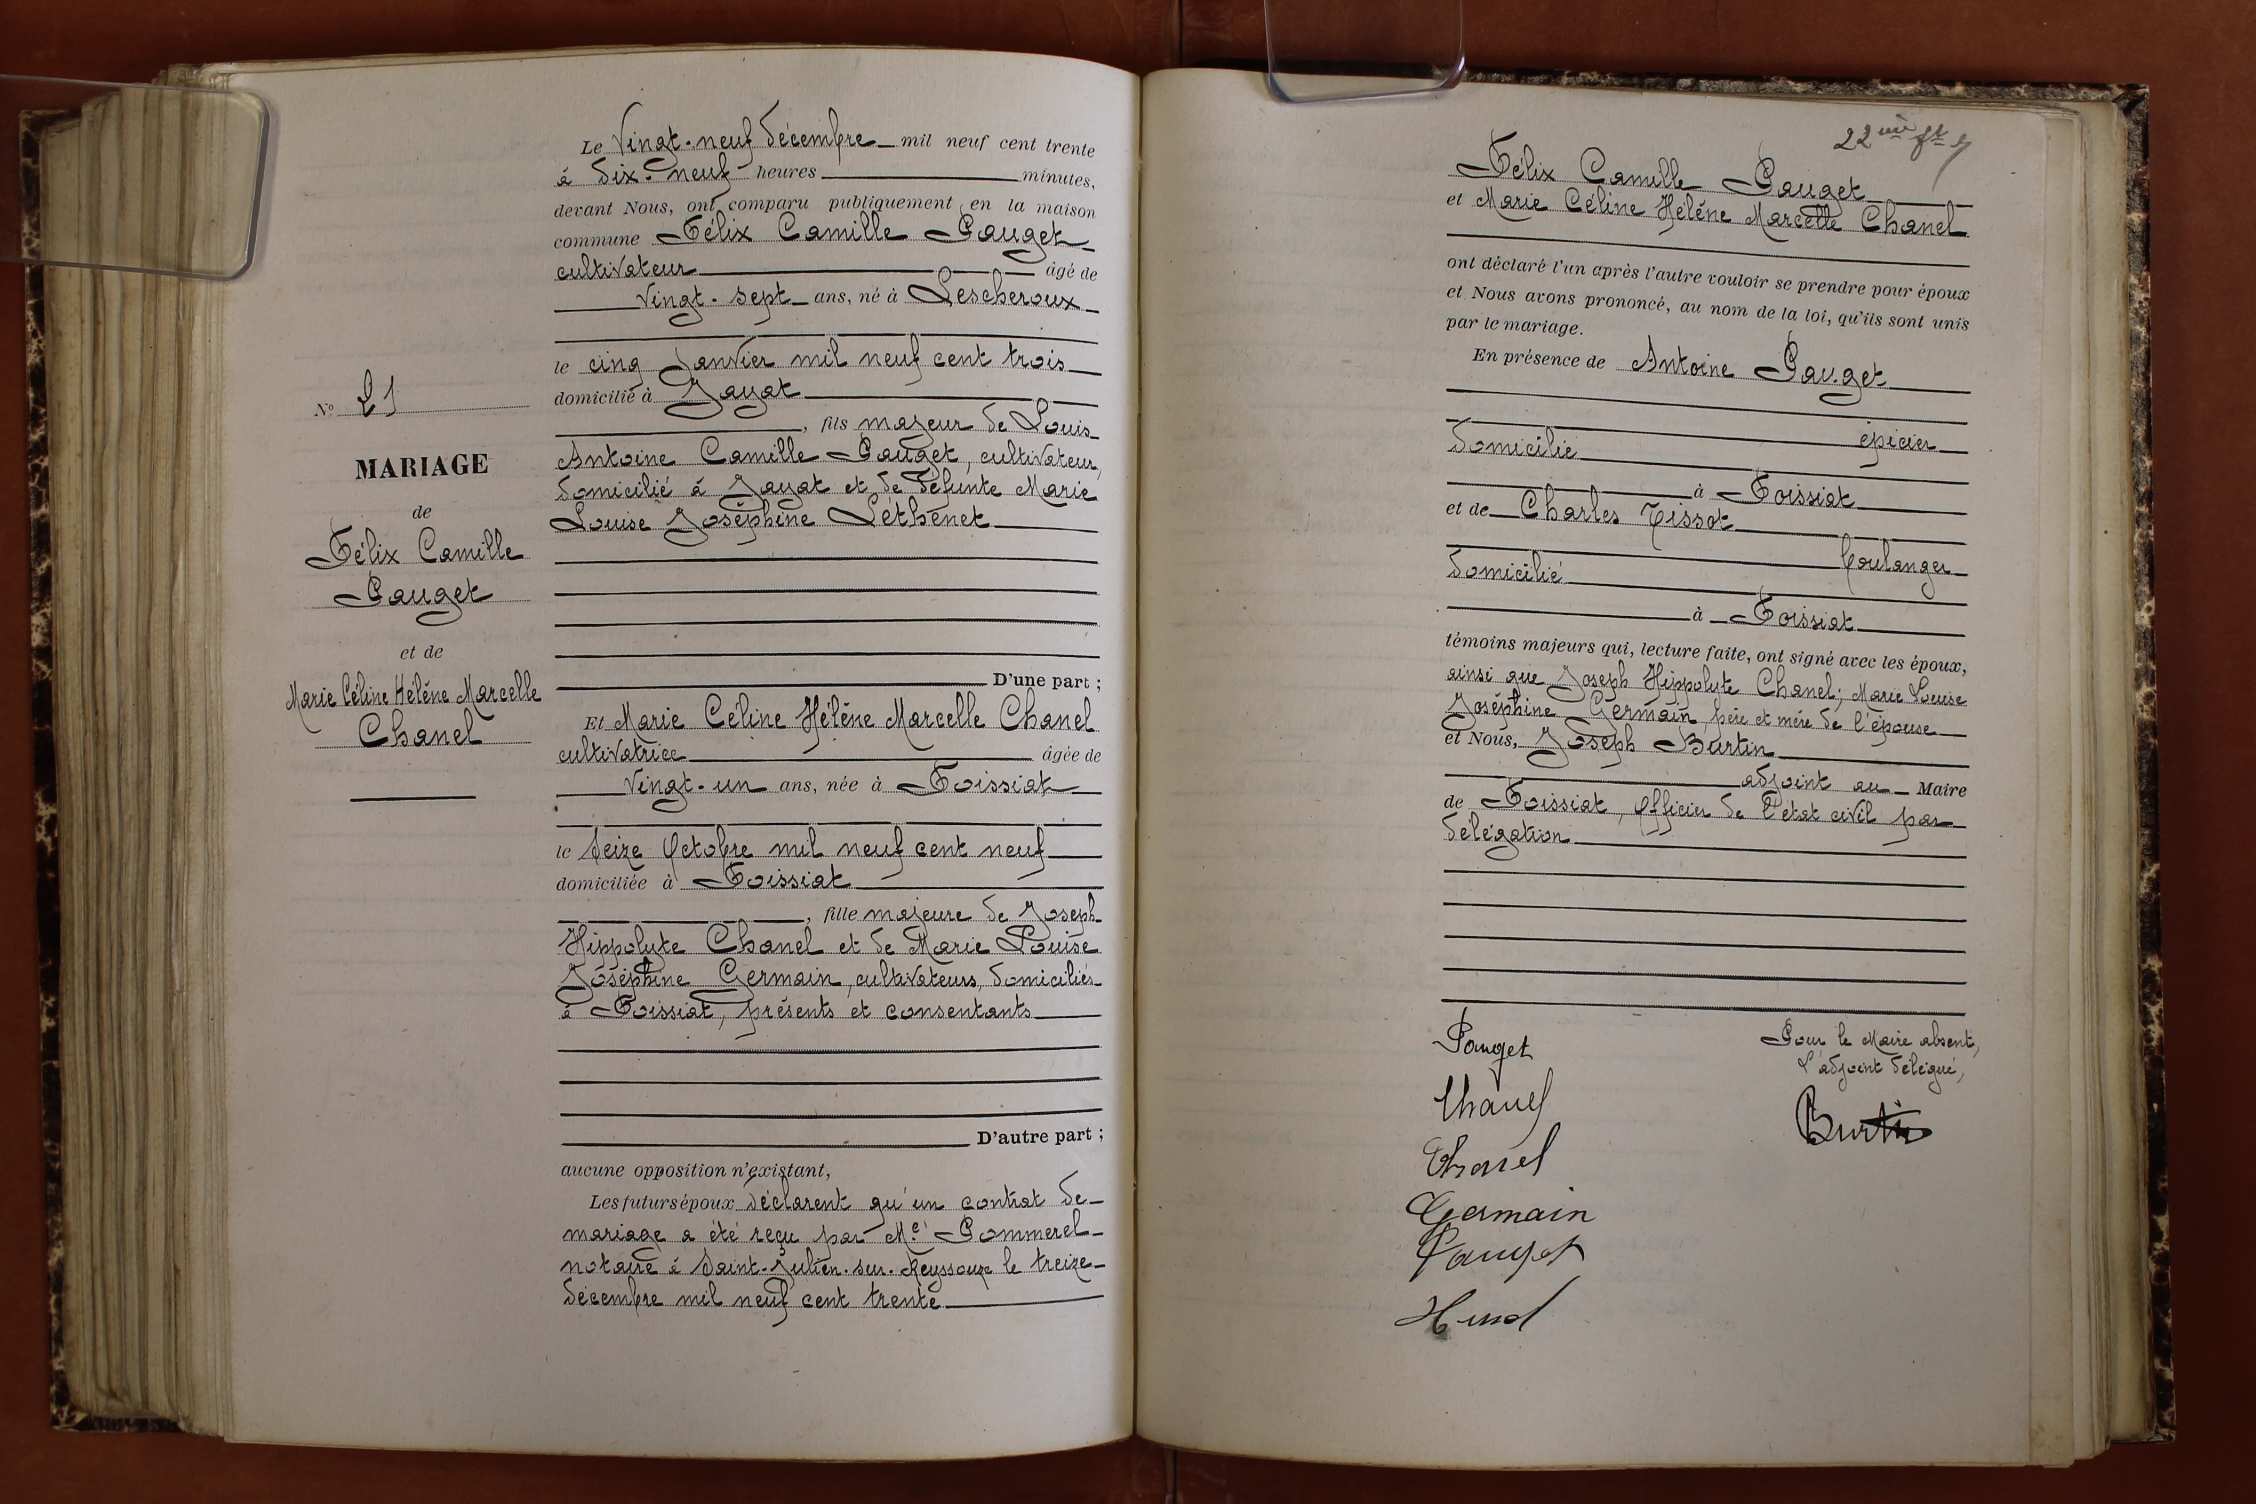 Le Vingt-neuf décembre mil neuf cent trente
à dix-neuf heures minutes,
devant Nous, ont comparu publiquement en la maison
commune Félix Camille Pauget
cultivateur âgé de
vingt-sept ans, né à Lescheroux
le cinq Janvier mil neuf cent trois
domicilié à Jayat
, fils majeur de Louis
Antoine Camille Pauget, cultivateur,
domicilié à Jayat et de défunte Marie
Louise Joséphine Lethenet
D'une part ;
Et Marie Céline Hélène Marcelle Chanel
cultivatrice âgée de
Vingt-un ans, née à Foissiat
le Seize Octobre mil neuf cent neuf
domiciliée à Foissiat
, fille majeure de Joseph
Hippolyte Chanel et de Marie Louise
Joséphine Germain, cultivateurs, domiciliés
à Foissiat, présents et consentants
D'autre part ;
aucune opposition n'existant,
Les futurs époux déclarent qu'un contrat de
mariage a été reçu par Me Pommerel
notaire à Saint-Julien-sur-Reyssouze le treize
décembre mil neuf cent trente
No 21
MARIAGE
de
Félix Camille
Pauget
et de
Marie Céline Hélène Marcelle
Chanel
22me ft
Félix Camille Pauget
et Marie Céline Hélène Marcelle Chanel
ont déclaré l'un après l'autre vouloir se prendre pour époux
et Nous avons prononcé, au nom de la loi, qu'ils sont unis
par le mariage.
En présence de Antoine Pauget
épicier
domicilié
à Foissiat
et de Charles Tissot
boulanger
domicilié
à Foissiat
témoins majeurs qui, lecture faite, ont signé avec les époux,
ainsi que Joseph Hippolyte Chanel; Marie Louise
Joséphine Germain, père et mère de l'épouse
et Nous, Joseph Burtin
adjoint au Maire
de Foissiat, Officier de l'état civil par
délégation
Pauget
Chanel
Chanel
Germain
Pauget
Pour le Maire absent,
L'adjoint délégué,
Burtin